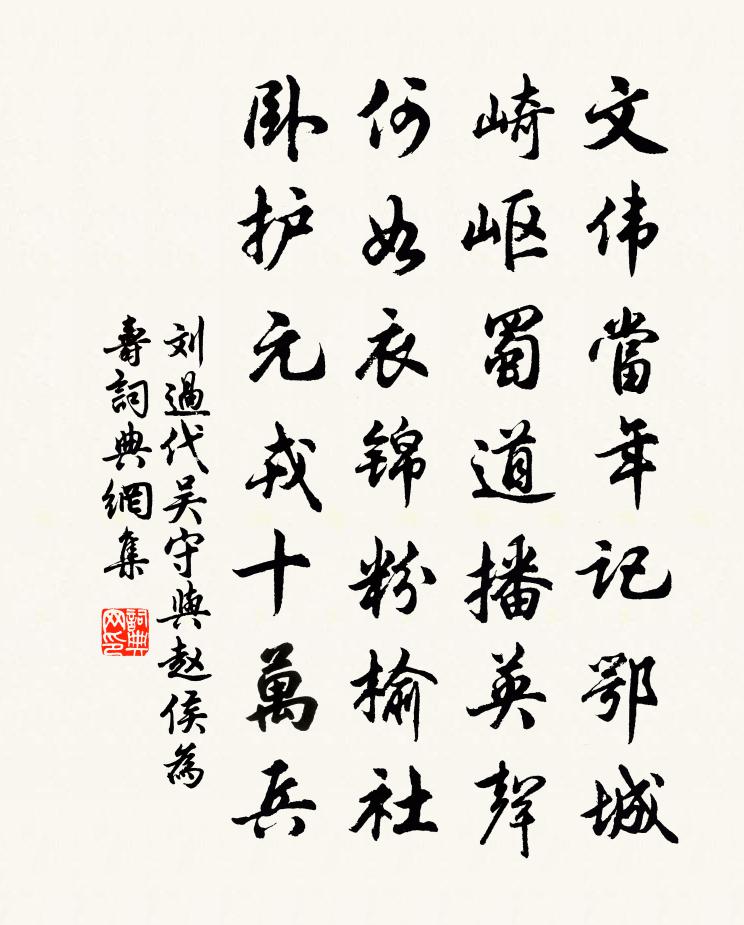 文伟當年记鄂城
崎岖蜀道播英聲
何如衣锦粉榆社
卧护元戎十萬兵
刘過代吴守與赵侯為
壽詞典網集
詞典
网印